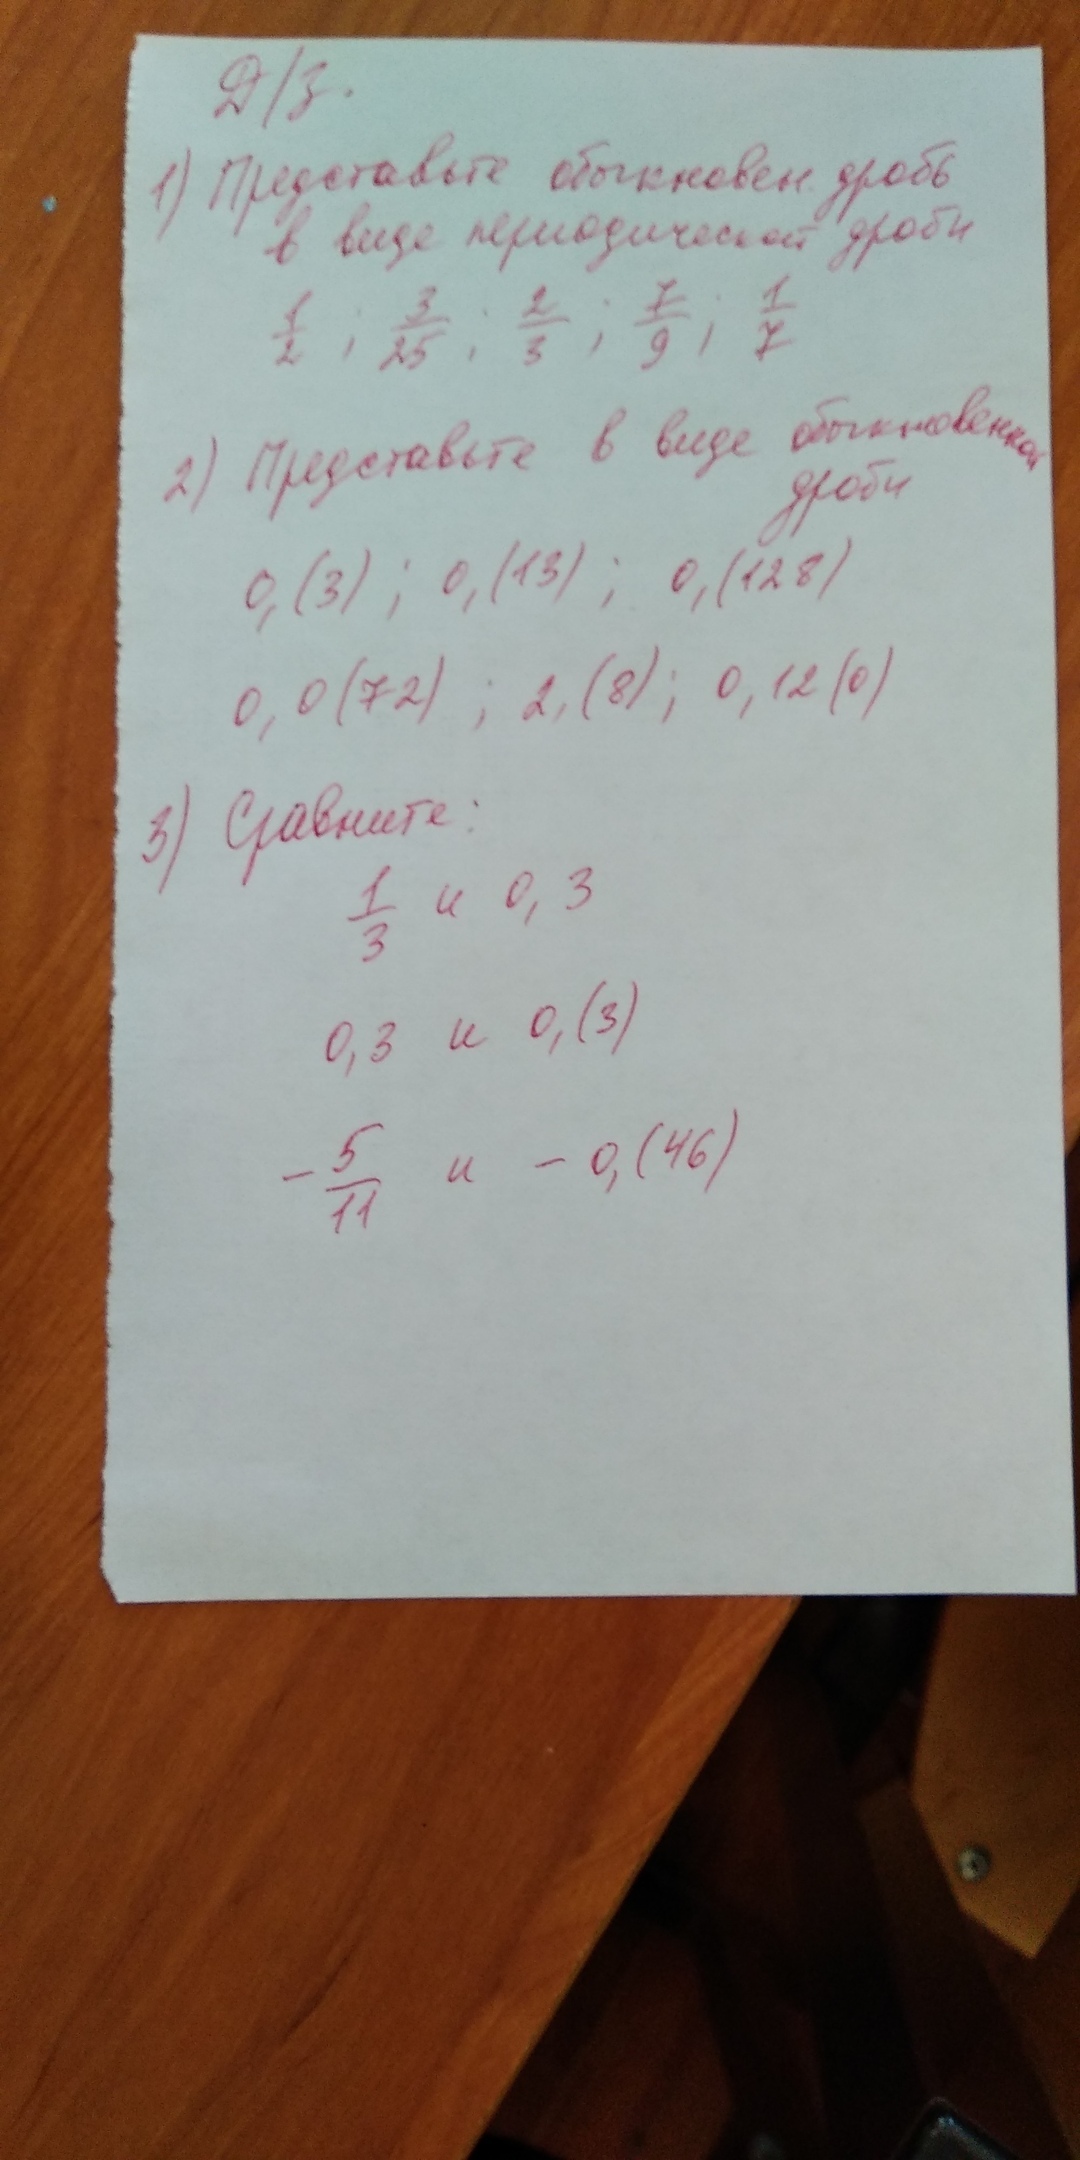 Д/З.
1) Представьте обыкновен. дробь
в виде периодической дроби
1/2 ; 3/25 ; 2/3 ; 7/9 ; 1/7
2) Представьте в виде обыкновенной
дроби
0,(3) ; 0,(13) ; 0,(128)
0,0(72) ; 2,(8) ; 0,12(0)
3) Сравните:
1/3 и 0,3
0,3 и 0,(3)
- 5/11 и - 0,(46)